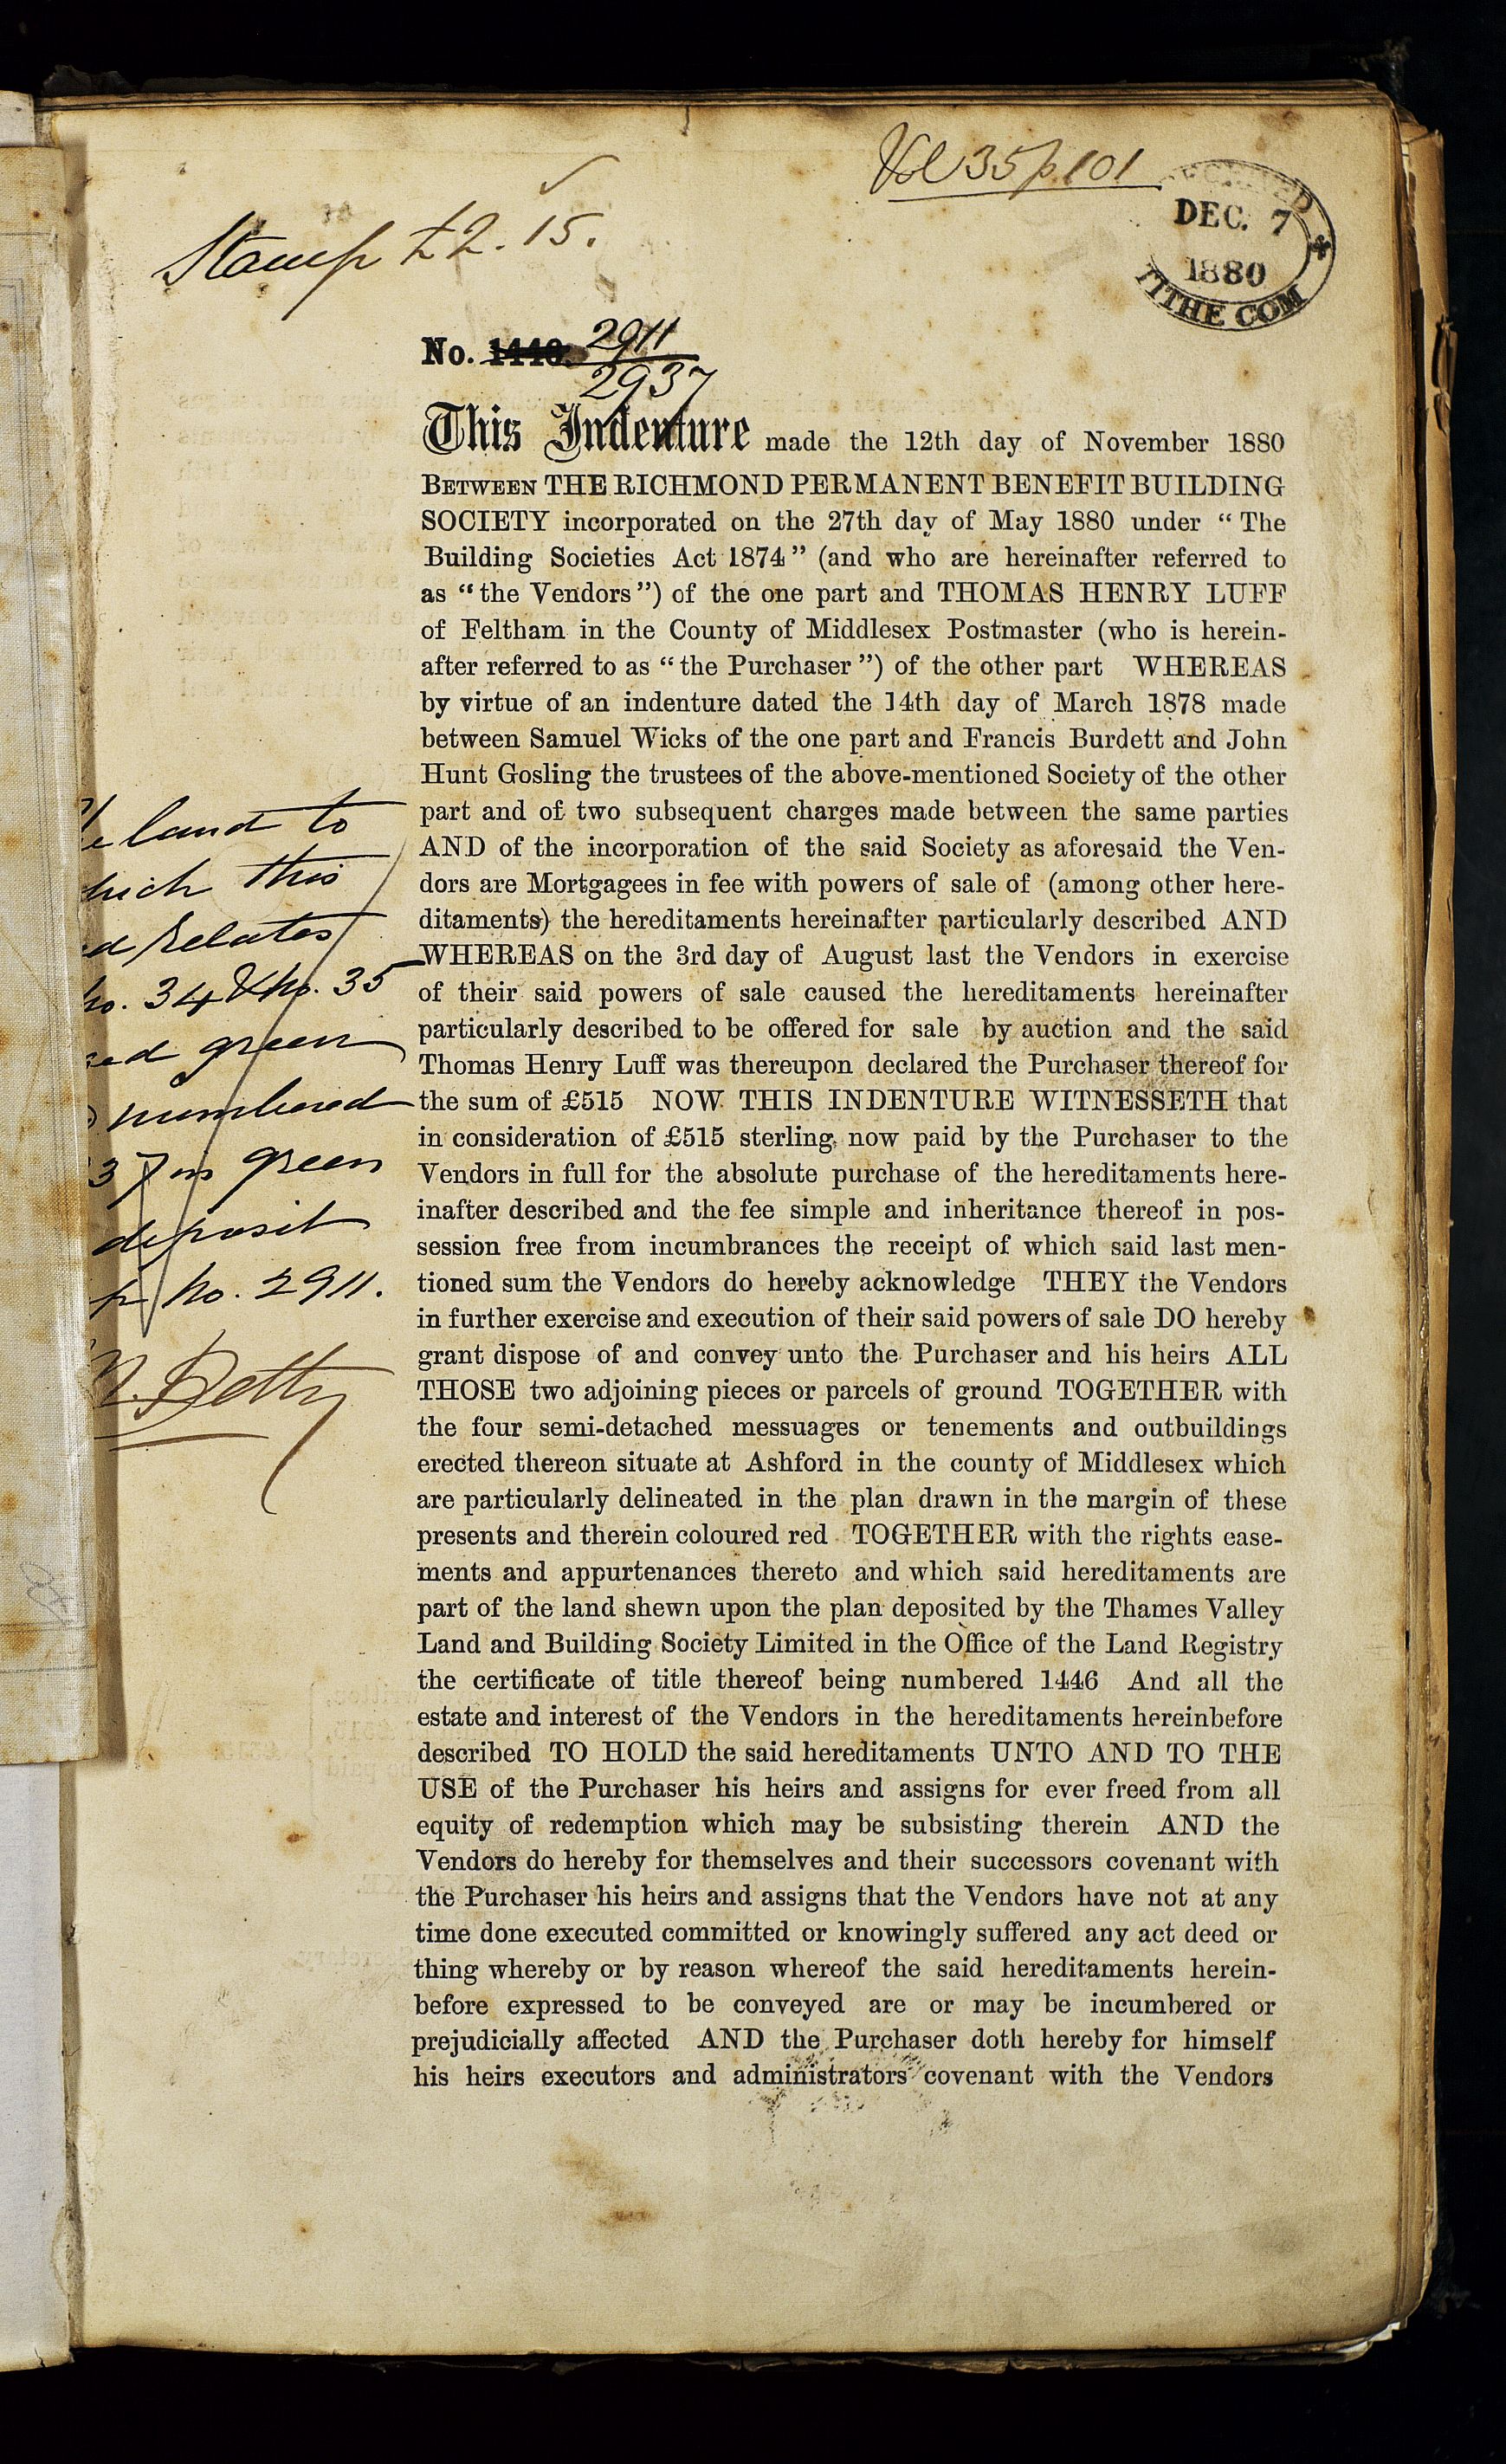 Vol 35 p. 101
DEC. 7
1880
TITHE COM
Stamp £2. 15.
No. 1446. 2911
2937
This Indenture made the 12th day of November 1880
BETWEEN THE RICHMOND PERMANENT BENEFIT BUILDING
SOCIETY incorporated on the 27th day of May 1880 under “The
Building Societies Act 1874” (and who are hereinafter referred to
as “the Vendors”) of the one part and THOMAS HENRY LUFF
of Feltham in the County of Middlesex Postmaster (who is herein-
after referred to as “the Purchaser”) of the other part WHEREAS
by virtue of an indenture dated the 14th day of March 1878 made
between Samuel Wicks of the one part and Francis Burdett and John
Hunt Gosling the trustees of the above-mentioned Society of the other
part and of two subsequent charges made between the same parties
AND of the incorporation of the said Society as aforesaid the Ven-
dors are Mortgagees in fee with powers of sale of (among other here-
ditaments) the hereditaments hereinafter particularly described AND
WHEREAS on the 3rd day of August last the Vendors in exercise
of their said powers of sale caused the hereditaments hereinafter
particularly described to be offered for sale by auction and the said
Thomas Henry Luff was thereupon declared the Purchaser thereof for
the sum of £515 NOW THIS INDENTURE WITNESSETH that
in consideration of £515 sterling now paid by the Purchaser to the
Vendors in full for the absolute purchase of the hereditaments here-
inafter described and the fee simple and inheritance thereof in pos-
session free from incumbrances the receipt of which said last men-
tioned sum the Vendors do hereby acknowledge THEY the Vendors
in further exercise and execution of their said powers of sale DO hereby
grant dispose of and convey unto the Purchaser and his heirs ALL
THOSE two adjoining pieces or parcels of ground TOGETHER with
the four semi-detached messuages or tenements and outbuildings
erected thereon situate at Ashford in the county of Middlesex which
are particularly delineated in the plan drawn in the margin of these
presents and therein coloured red TOGETHER with the rights ease-
ments and appurtenances thereto and which said hereditaments are
part of the land shewn upon the plan deposited by the Thames Valley
Land and Building Society Limited in the Office of the Land Registry
the certificate of title thereof being numbered 1446 And all the
estate and interest of the Vendors in the hereditaments hereinbefore
described TO HOLD the said hereditaments UNTO AND TO THE
USE of the Purchaser his heirs and assigns for ever freed from all
equity of redemption which may be subsisting therein AND the
Vendors do hereby for themselves and their successors covenant with
the Purchaser his heirs and assigns that the Vendors have not at any
time done executed committed or knowingly suffered any act deed or
thing whereby or by reason whereof the said hereditaments herein-
before expressed to be conveyed are or may be incumbered or
prejudicially affected AND the Purchaser doth hereby for himself
his heirs executors and administrators covenant with the Vendors
land to
hich this
d relates
No. 34 & No. 35
ed green
numbered
37 in green
deposit
No. 2911.